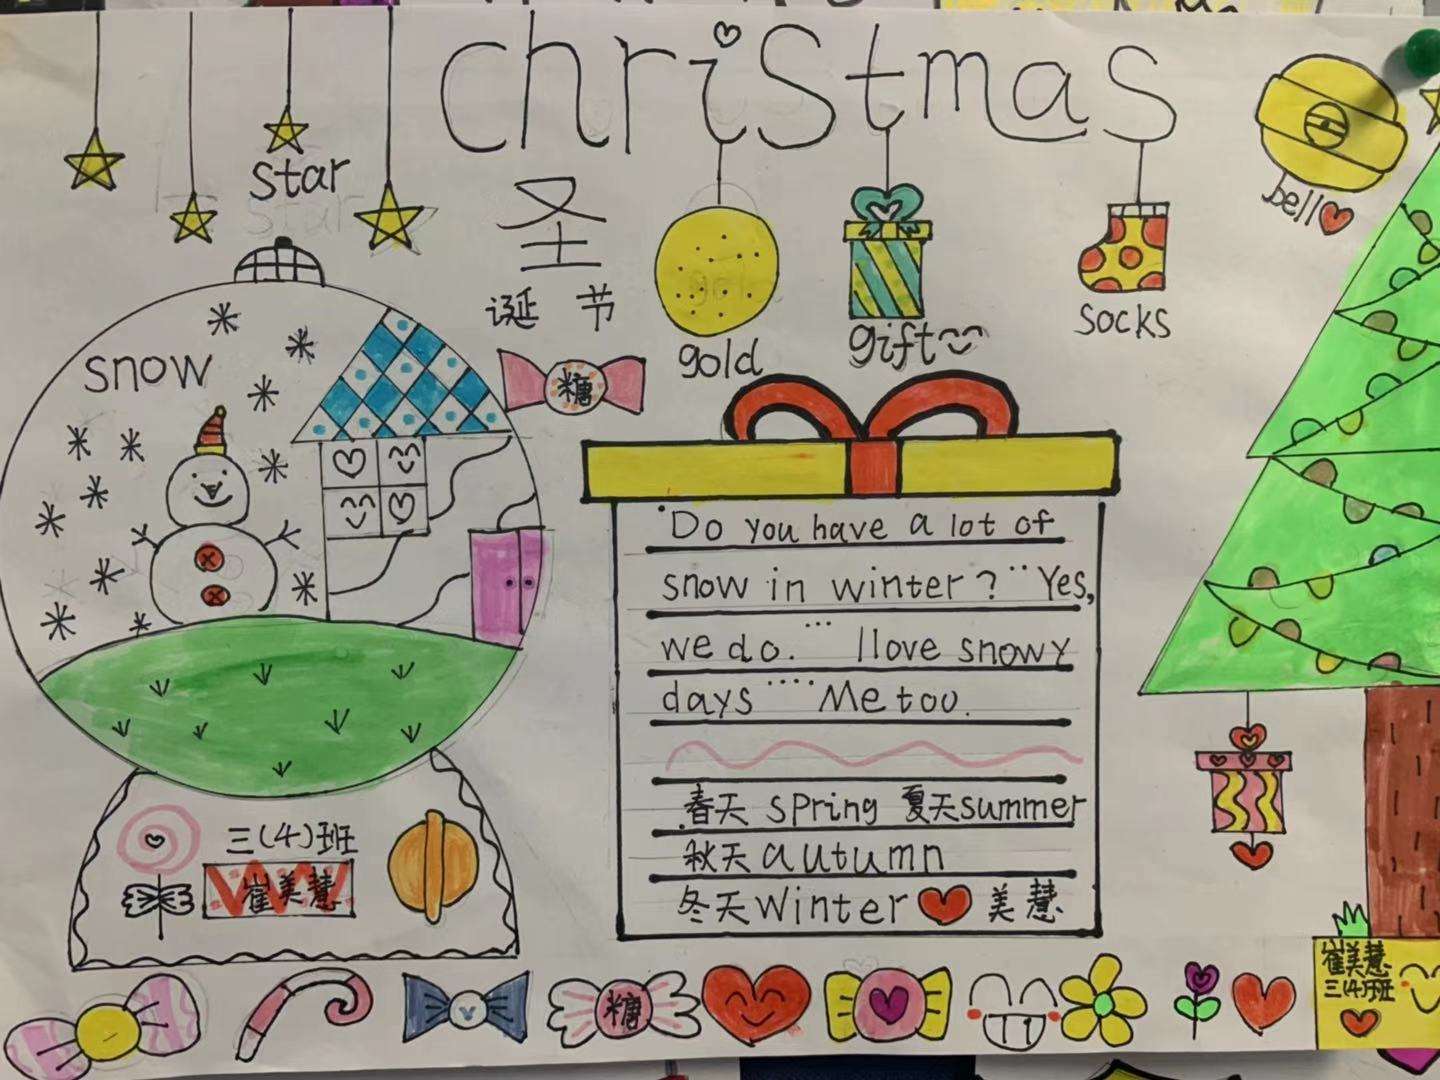 christmas
star
圣
诞 节
gold
gift
socks
bell
snow
糖
Do you have a lot of
snow in winter? ¨ Yes,
we do. ... I love snowy
days .... Me too.
春天 spring 夏天summer
秋天autumn
冬天winter 美慧
三(4)班
崔美慧
糖
崔美慧
三(4)班